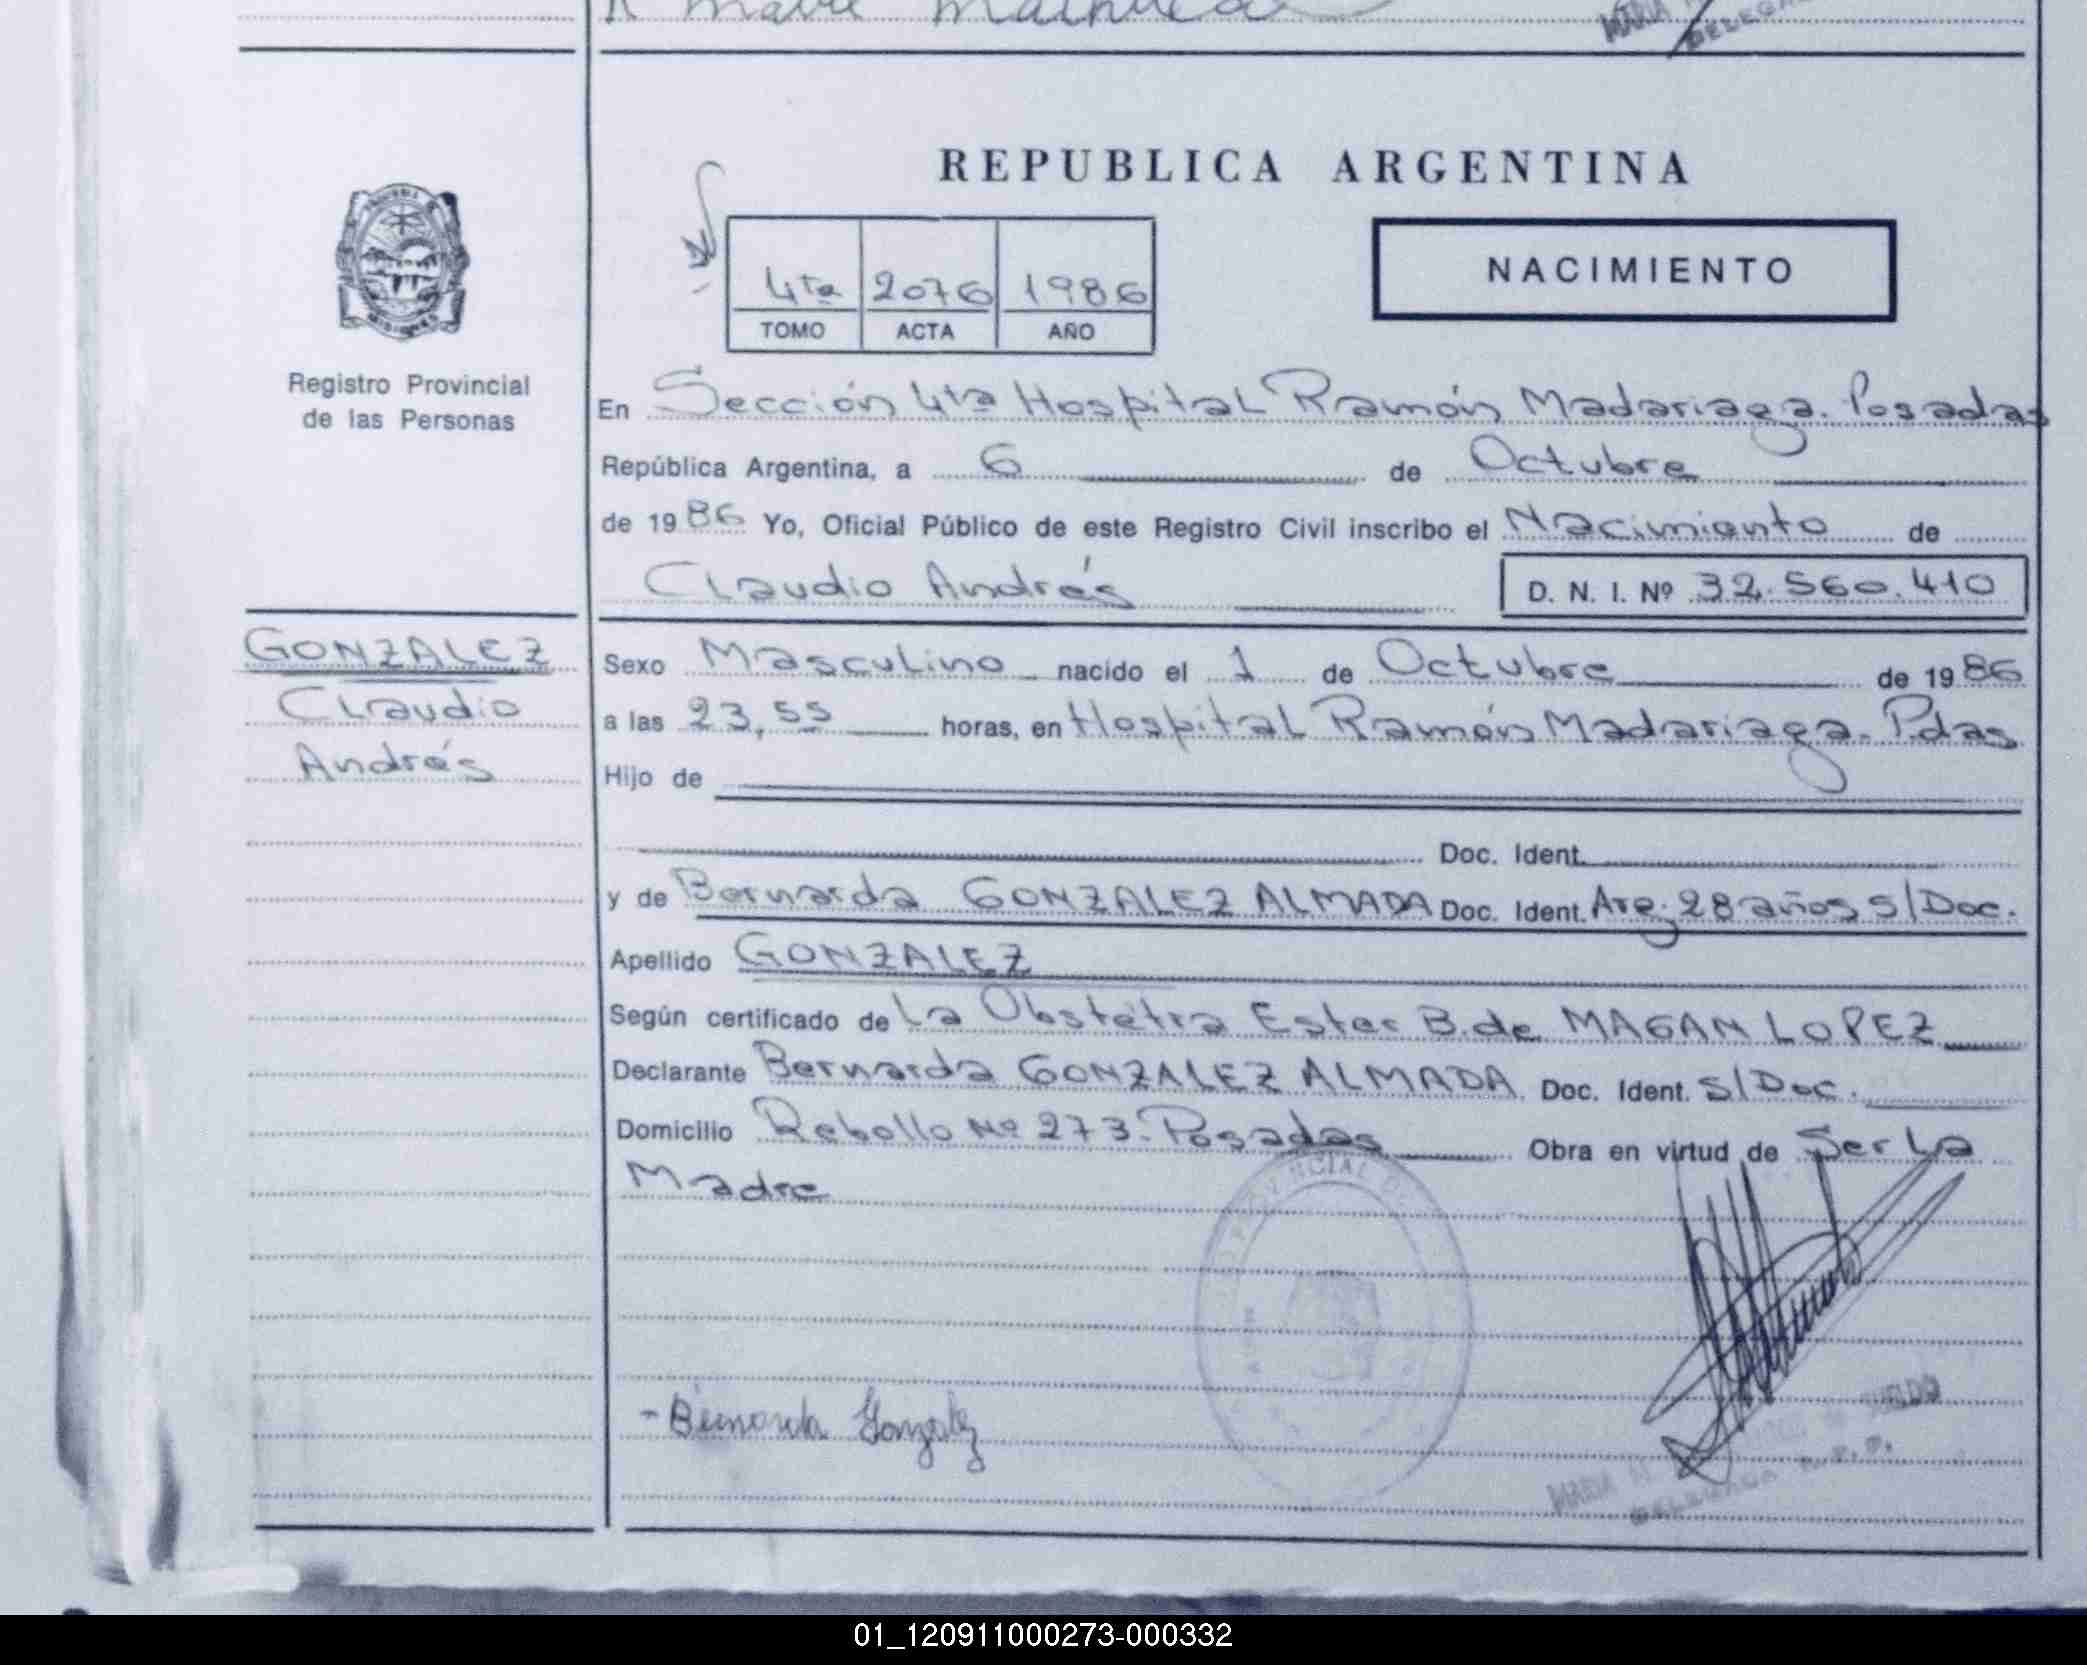 REPUBLICA ARGENTINA
NACIMIENTO
4ta 2076 1986
TOMO ACTA AÑO
Registro Provincial
de las Personas
En Sección 4ta Hospital Ramón Madariaga. Posadas
República Argentina, a 6 de Octubre
de 1986 Yo, Oficial Público de este Registro Civil inscribo el Nacimiento de
Claudio Andrés D. N. I. Nº 32.560.410
GONZALEZ
Claudio
Andrés
Sexo Masculino nacido el 1 de Octubre de 1986
a las 23,55 horas, en Hospital Ramón Madariaga. Pdas
Hijo de
Doc. Ident.
y de Bernarda GONZALEZ ALMADA Doc. Ident. Arg. 28 años s/Doc.
Apellido GONZALEZ
Según certificado de La Obstetra Ester B. de MAGAN LOPEZ
Declarante Bernarda GONZALEZ ALMADA. Doc. Ident. S/Doc.
Domicilio Rebollo Nº 273. Posadas Obra en virtud de Ser La
Madre
- Bernarda Gonzalez
MARIA
SUELDO
DELEGADA R. P. P.
01_120911000273-000332